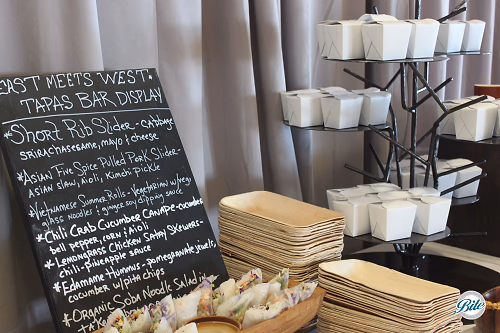 EAST MEETS WEST
TAPAS BAR DISPLAY
*SHORT RIB SLIDER - CABBAGE
SRIRACHA SESAME, MAYO & CHEESE
*ASIAN FIVE SPICE PULLED PORK SLIDER -
ASIAN SLAW, AIOLI, KIMCHI PICKLE
*VIETNAMESE SUMMER ROLLS - VEGETARIAN W/ VEG
GLASS NOODLES & GINGER SOY DIPPING SAUCE
*CHILI CRAB CUCUMBER CANAPE - CUCUMBER
BELL PEPPER, CORN & AIOLI
*LEMONGRASS CHICKEN SATAY SKEWERS -
CHILI - PINEAPPLE SAUCE
*EDAMAME HUMMUS - POMEGRANATE JEWELS,
CUCUMBER W/ PITA CHIPS
*ORGANIC SOBA NOODLE SALAD W/
Bite